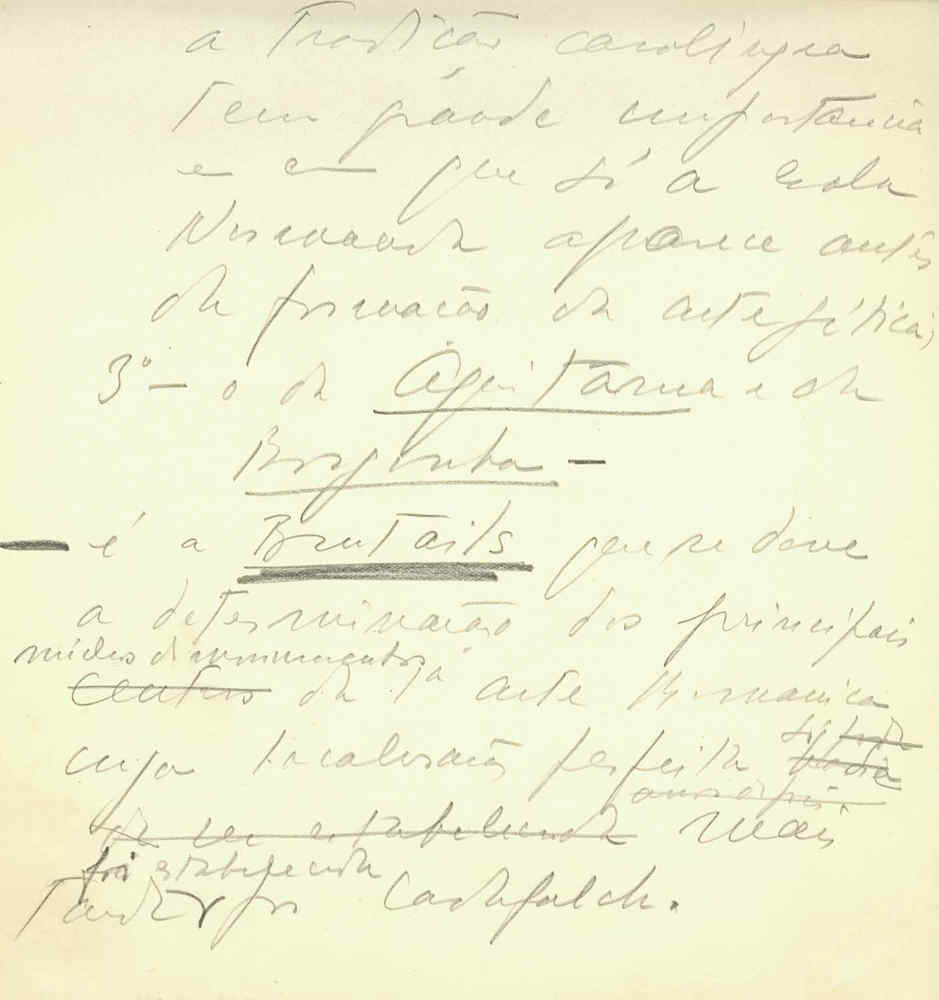 a Tradição carolíngea
tem grande importancia
e em que só a Escola
Normanda aparece antes
da formação da arte gótica;
3º — o da Aquitania e da
Borgonha —
— é a Brutails que se deve
a determinação dos principais
centros da arte Romanica
cuja localisação perfeita
ser estabelecida mais
foi estabelecida
tarde por Cadafalch.